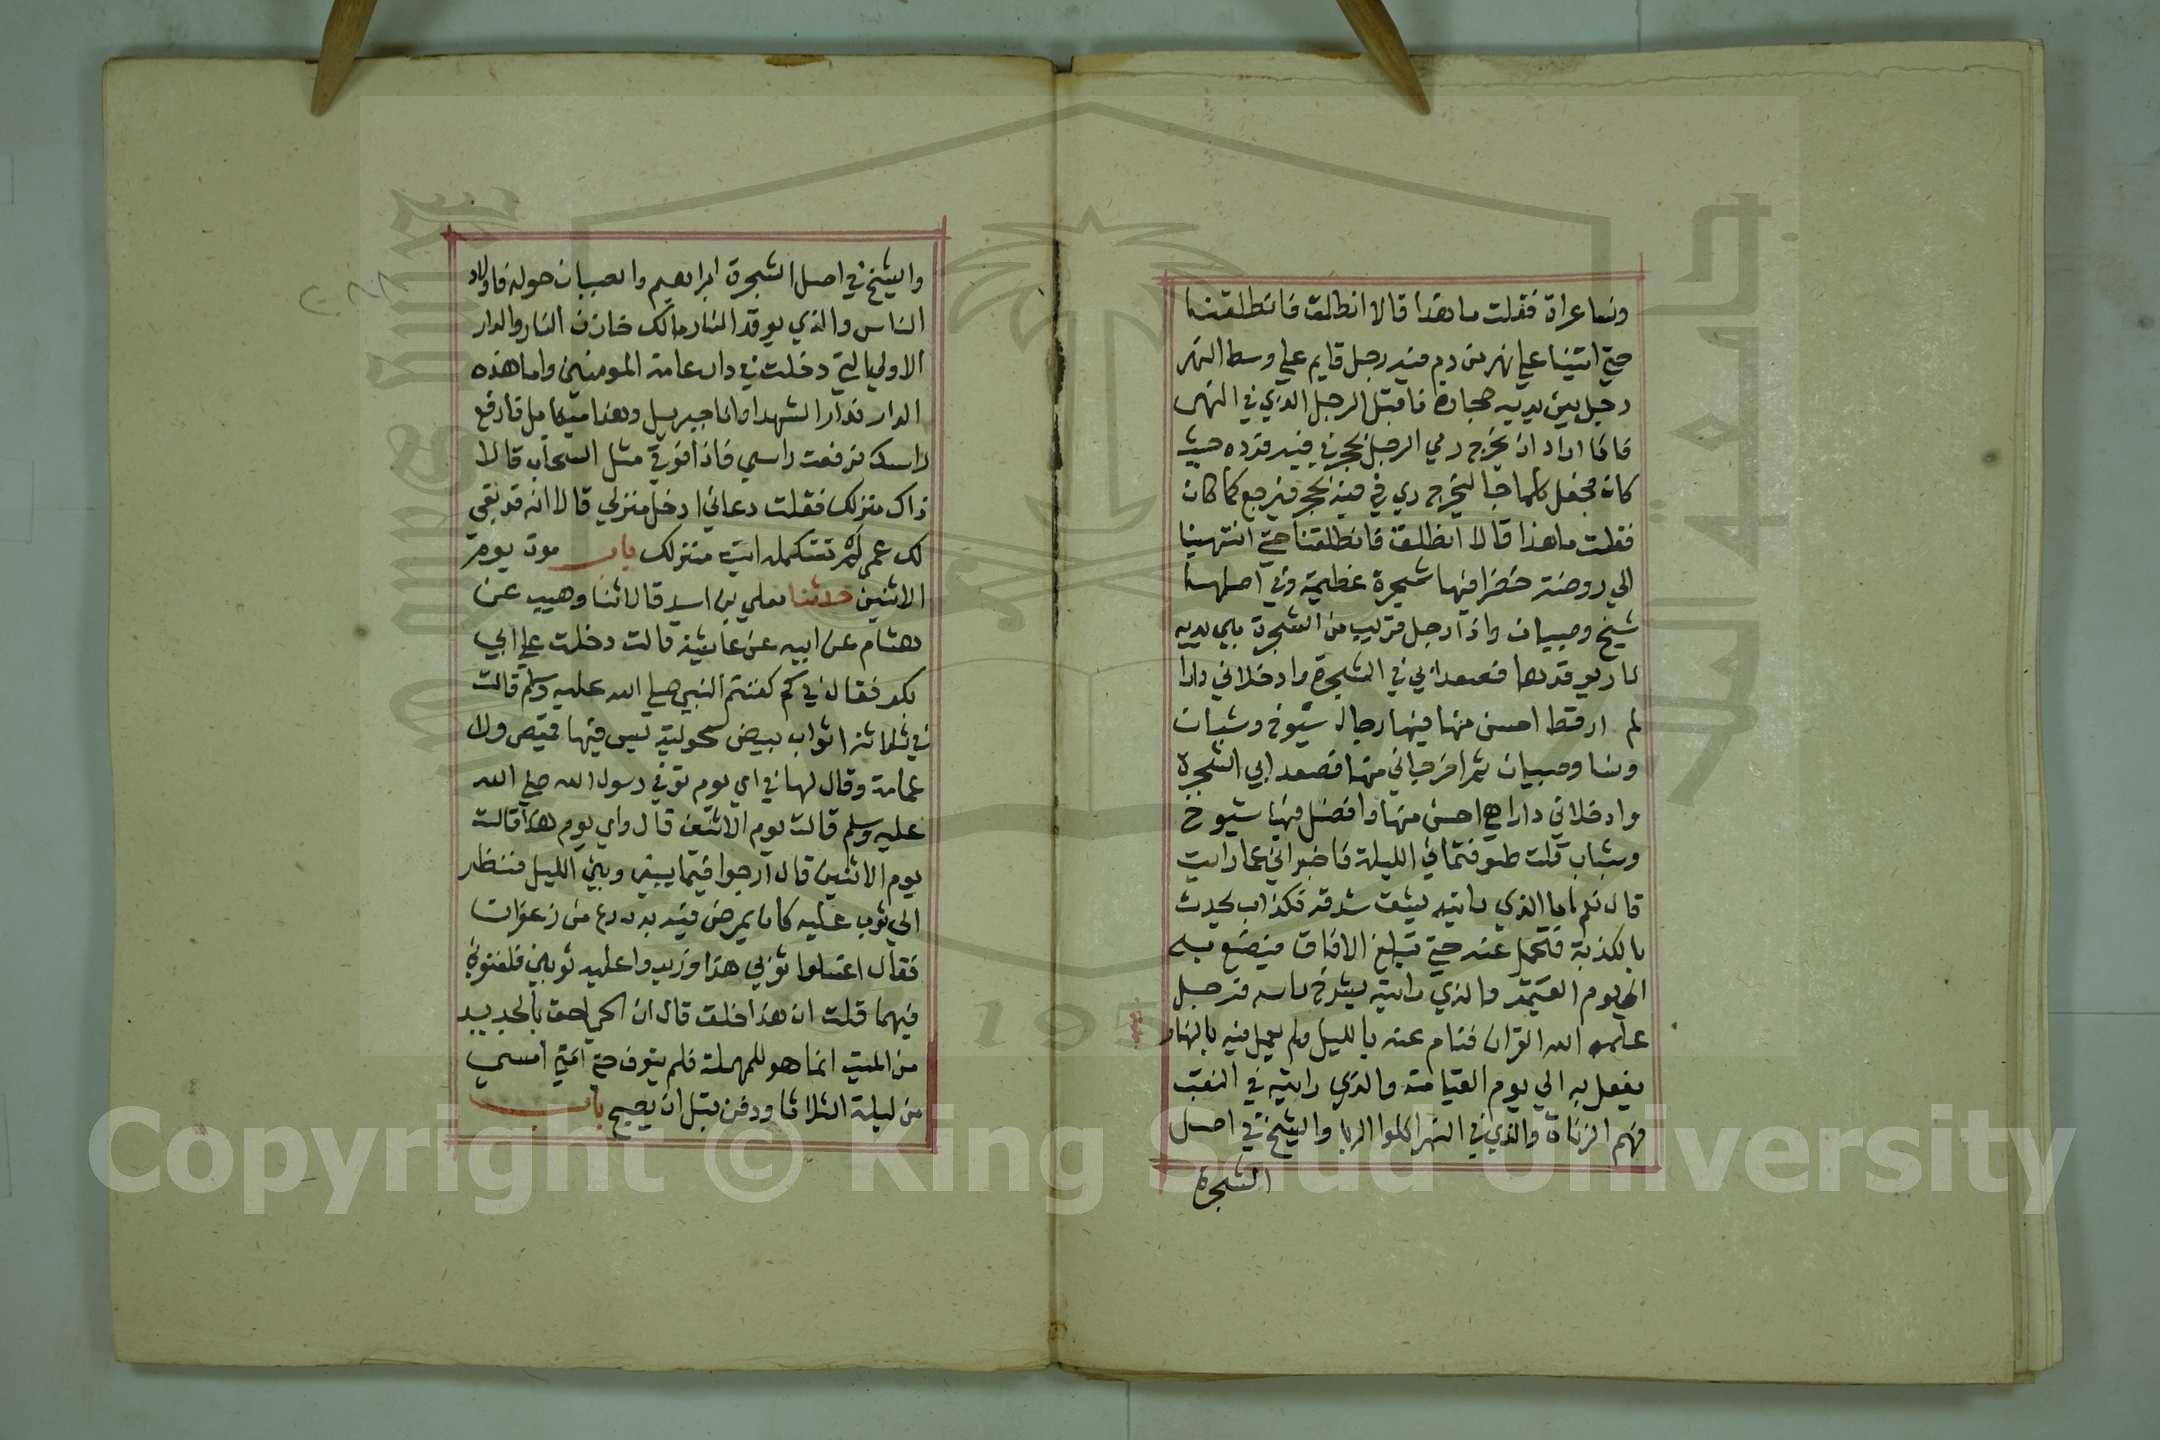 ونسا عراة فقلت ما هذا قالا انطلق فانطلقنا
حتي اتينا علي نهر من دم فيه رجل قايم علي وسط النهر
رجل بين يديه حجارة فاقبل الرجل الذي في النهر
فاذا اراد ان يخرج رمي الرجل بحجر في فيه فرده حيث
كان فجعل كلما جا ليخرج رمي في فيه بحجر فيرجع كما كان
فقلت ما هذا قالا انطلق فانطلقنا حتي انتهينا
الي روضة خضرا فيها شجرة عظيمة وفي اصلها
شيخ وصبيان واذا رجل قريب من الشجرة بين يديه
نار يوقدها فصعدا بي في الشجرة وادخلاني دارا
لم ار قط احسن منها فيها رجال شيوخ وشباب
ونسا وصبيان ثم اخرجاني منها فصعدا بي الشجرة
وادخلاني دارا هي احسن منها وافضل فيها شيوخ
وشباب قلت طوفتماني الليلة فاخبراني عما رايت
قال نعم اما الذي رايته يشق شدقه فكذاب يحدث
بالكذبة فتحمل عنه حتي تبلغ الافاق فيصنع به
الي يوم القيمة والذي رايته يشدخ راسه فرجل
علمه الله القران فنام عنه بالليل ولم يعمل فيه بالنهار
يفعل به الي يوم القيامة والذي رايته في النقب
فهم الزناة والذي في النهر اكلوا الربا والشيخ في اصل
الشجرة
والشيخ في اصل الشجرة ابراهيم والصبيان حوله فاولاد
الناس والذي يوقد النار مالك خازن النار والدار
الاولي التي دخلت في دار عامة المومنين واما هذه
الدار فدار الشهدا وانا جبريل وهذا ميكايل فارفع
راسك فرفعت راسي فاذا فوقي مثل السحاب قالا
ذاك منزلك فقلت دعاني ادخل منزلي قالا انه قد بقي
لك عمر لم تستكمله اتيت منزلك باب موت يوم
الاثنين حدثنا معلي بن اسد قال ثنا وهيب عن
هشام عن ابيه عن عايشة قالت دخلت علي ابي
بكر فقال في كم كفنتم النبي صلي الله عليه وسلم قالت
في ثلاثة اثواب بيض سحولية ليس فيها قميص ولا
عمامة وقال لها في اي يوم توفي رسول الله صلي الله
عليه وسلم قالت يوم الاثنين قال فاي يوم هذا قالت
يوم الاثنين قال ارجوا فيما بيني وبين الليل فنظر
الي ثوب عليه كان يمرض فيه به ردع من زعفران
فقال اغسلوا ثوبي هذا وزيدوا عليه ثوبين فكفنوني
فيهما قلت ان هذا خلق قال ان الحي احق بالجديد
من الميت انما هو للمهملة فلم يتوف حتي امسي
من ليلة الثلاثا ودفن قبل ان يصبح باب
Copyright © King Saud University